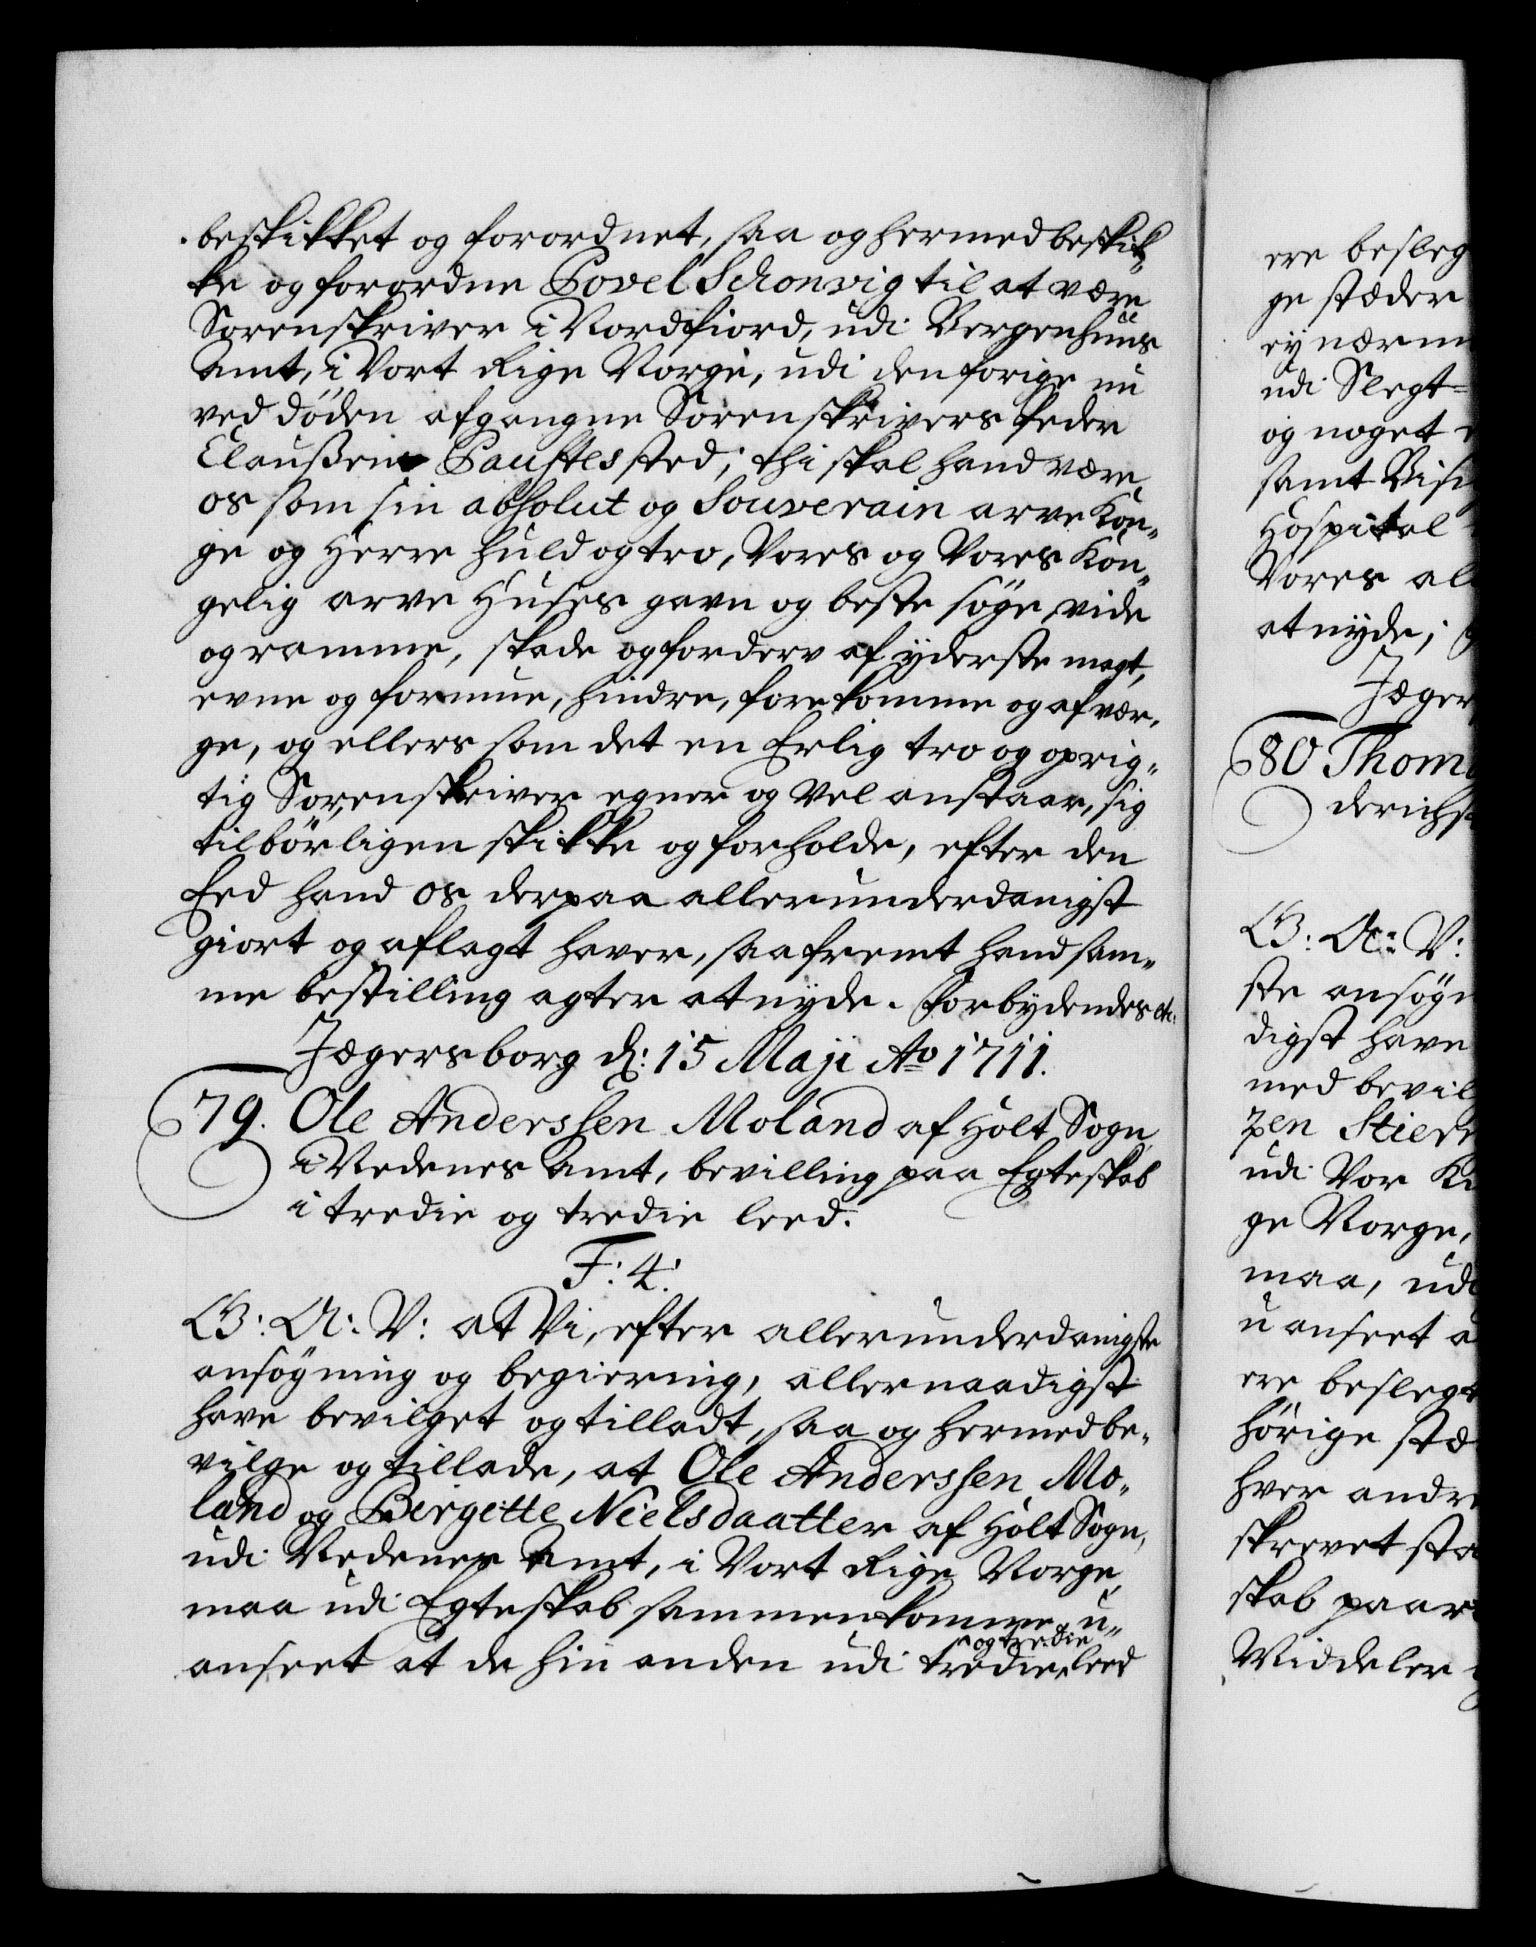 beskikket og forordnet, saa og hermed beskik-
ke og forordne Povel Schonvig til at være
Sorenskriver i Nordfiord, udi Bergenhuus
Amt, i Vort Rige Norge, udi den forige nu
ved døden afgangne Sorenskrivers Peder
Claussen Pauftes sted; thi skal hand være
os som sin absolut og Souverain arve Kon-
ge og Herre huld og tro, Vores og Vores Kon-
gelig arve Huses gavn og beste søge, vide
og ramme, skade og forderv af yderste magt,
evne og formue, hindre, forekomme og afvær-
ge, og ellers som det en Erlig tro og oprig-
tig Sorenskriver egner og vel anstaar, sig
tilbørligen skikke og forholde, efter den
Eed hand os derpaa allerunderdanigst
giort og aflagt haver, saafremt hand sam-
me bestilling agter at nyde. Forbydendes etc:
Jægersborg d: 15 Maji Ao 1711.
79. Ole Anderssen Moland af Holt Sogn
i Nedenes Amt, bevilling paa Egteskab
i tredie og tredie leed.
F: 4:
G: A: V: at Vi, efter allerunderdanigste
ansøgning og begiering, allernaadigst
have bevilget og tilladt, saa og hermed be-
vilge og tillade, at Ole Anderssen Mo-
land og Birgette Nielsdaatter af Holt Sogn,
udi Nedenes Amt, i Vort Rige Norge,
maa udi Egteskab sammenkomme, u-
anseet at de hin anden udi tredie og tredie leed
ere besleg
ge stæder
ey nærm
udi Slegt-
og noget
samt Visi
Hospital
Vores al
at nyde;
Jæger
80 Thom
derichs
G: A: V:
ste ansøgn
digst have
med bevil
pen Stier
udi Vor K
ge Norge,
maa, udi
uanseet a
ere beslegt
hørige stæ
hver andre
skrevet sta
skab paa
Middeler